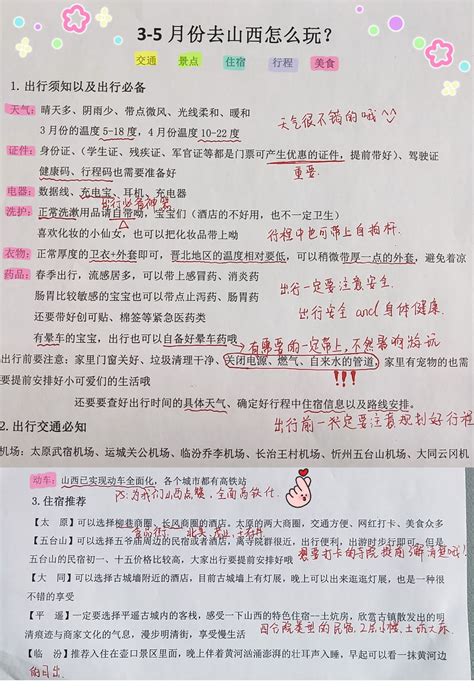 3-5 月份去山西怎么玩？
交通 景点 住宿 行程 美食
1. 出行须知以及出行必备
天气：晴天多、阴雨少、带点微风、光线柔和、暖和
天气很不错的哦
3 月份的温度 5-18 度，4 月份温度 10-22 度
证件：身份证、（学生证、残疾证、军官证等都是门票可产生优惠的证件，提前带好）、驾驶证
重要
健康码、行程码也需要准备好
电器：数据线、充电宝、耳机、充电器
出行必备神器
洗护：正常洗漱用品请自带呦，宝宝们（酒店的不好用，也不一定卫生）
喜欢化妆的小仙女，也可以把化妆品带上呦
行程中也可带上自拍杆.
衣物：正常厚度的卫衣+外套即可，晋北地区的温度相对要低，可以稍微带厚一点的外套，避免着凉
药品：春季出行，流感居多，可以带上感冒药、消炎药
出行一定要注意安全.
肠胃比较敏感的宝宝也可以带点止泻药、肠胃药
出行安全 and 身体健康.
还要带好创可贴、棉签等紧急医药类
有晕车的宝宝，出行也可以自备好晕车药哦
有需要的一定带上，不然影响游玩
出行前要注意：家里门窗关好、垃圾清理干净、关闭电源、燃气、自来水的管道，家里有宠物的也需
要提前安排好小可爱们的生活哦
!!!
还要要查好出行时间的具体天气、确定好行程中住宿信息以及路线安排。
出行前一定要注意规划好行程
2. 出行交通必知
机场：太原武宿机场、运城关公机场、临汾乔李机场、长治王村机场、忻州五台山机场、大同云冈机
动车：山西已实现动车全面化，各个城市都有高铁站
PS：为我们山西点赞，全面高铁化.
3. 住宿推荐
【太 原】可以选择柳巷商圈、长风商圈的酒店。太原的两大商圈，交通方便、网红打卡、美食众多
【五台山】可以选择五爷庙周边的民宿或者酒店，离寺院群很近，出行便利，出游时步行即可，但是
五台山的民宿初一、十五价格比较高，大家出行要提前安排好哦
想要打卡的寺院提前了解清楚哦!
【大 同】可以选择古城墙附近的酒店，目前古城墙上有灯展，晚上可以出来逛逛灯展，也是一种很
不错的享受
【平 遥】一定要选择平遥古城内的客栈，感受一下山西的特色住宿--土炕房，欣赏古镇散发出的明
清痕迹与商家文化的气息，漫步明清街，享受慢生活
四合院类型的民宿，2层小楼，土炕大床.
【临 汾】推荐入住在壶口景区里面，晚上伴着黄河汹涌澎湃的壮耳声入睡，早起可以看一抹黄河边
的日出.